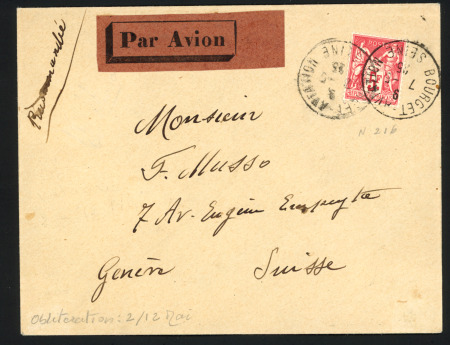 Recommandé
Par Avion
BOURGET
AVIATION
SEINE
Monsieur
F. Musso
7 Av. Eugène Empeyta
Genève Suisse
N 216
Obliteration: 2/12 Mai